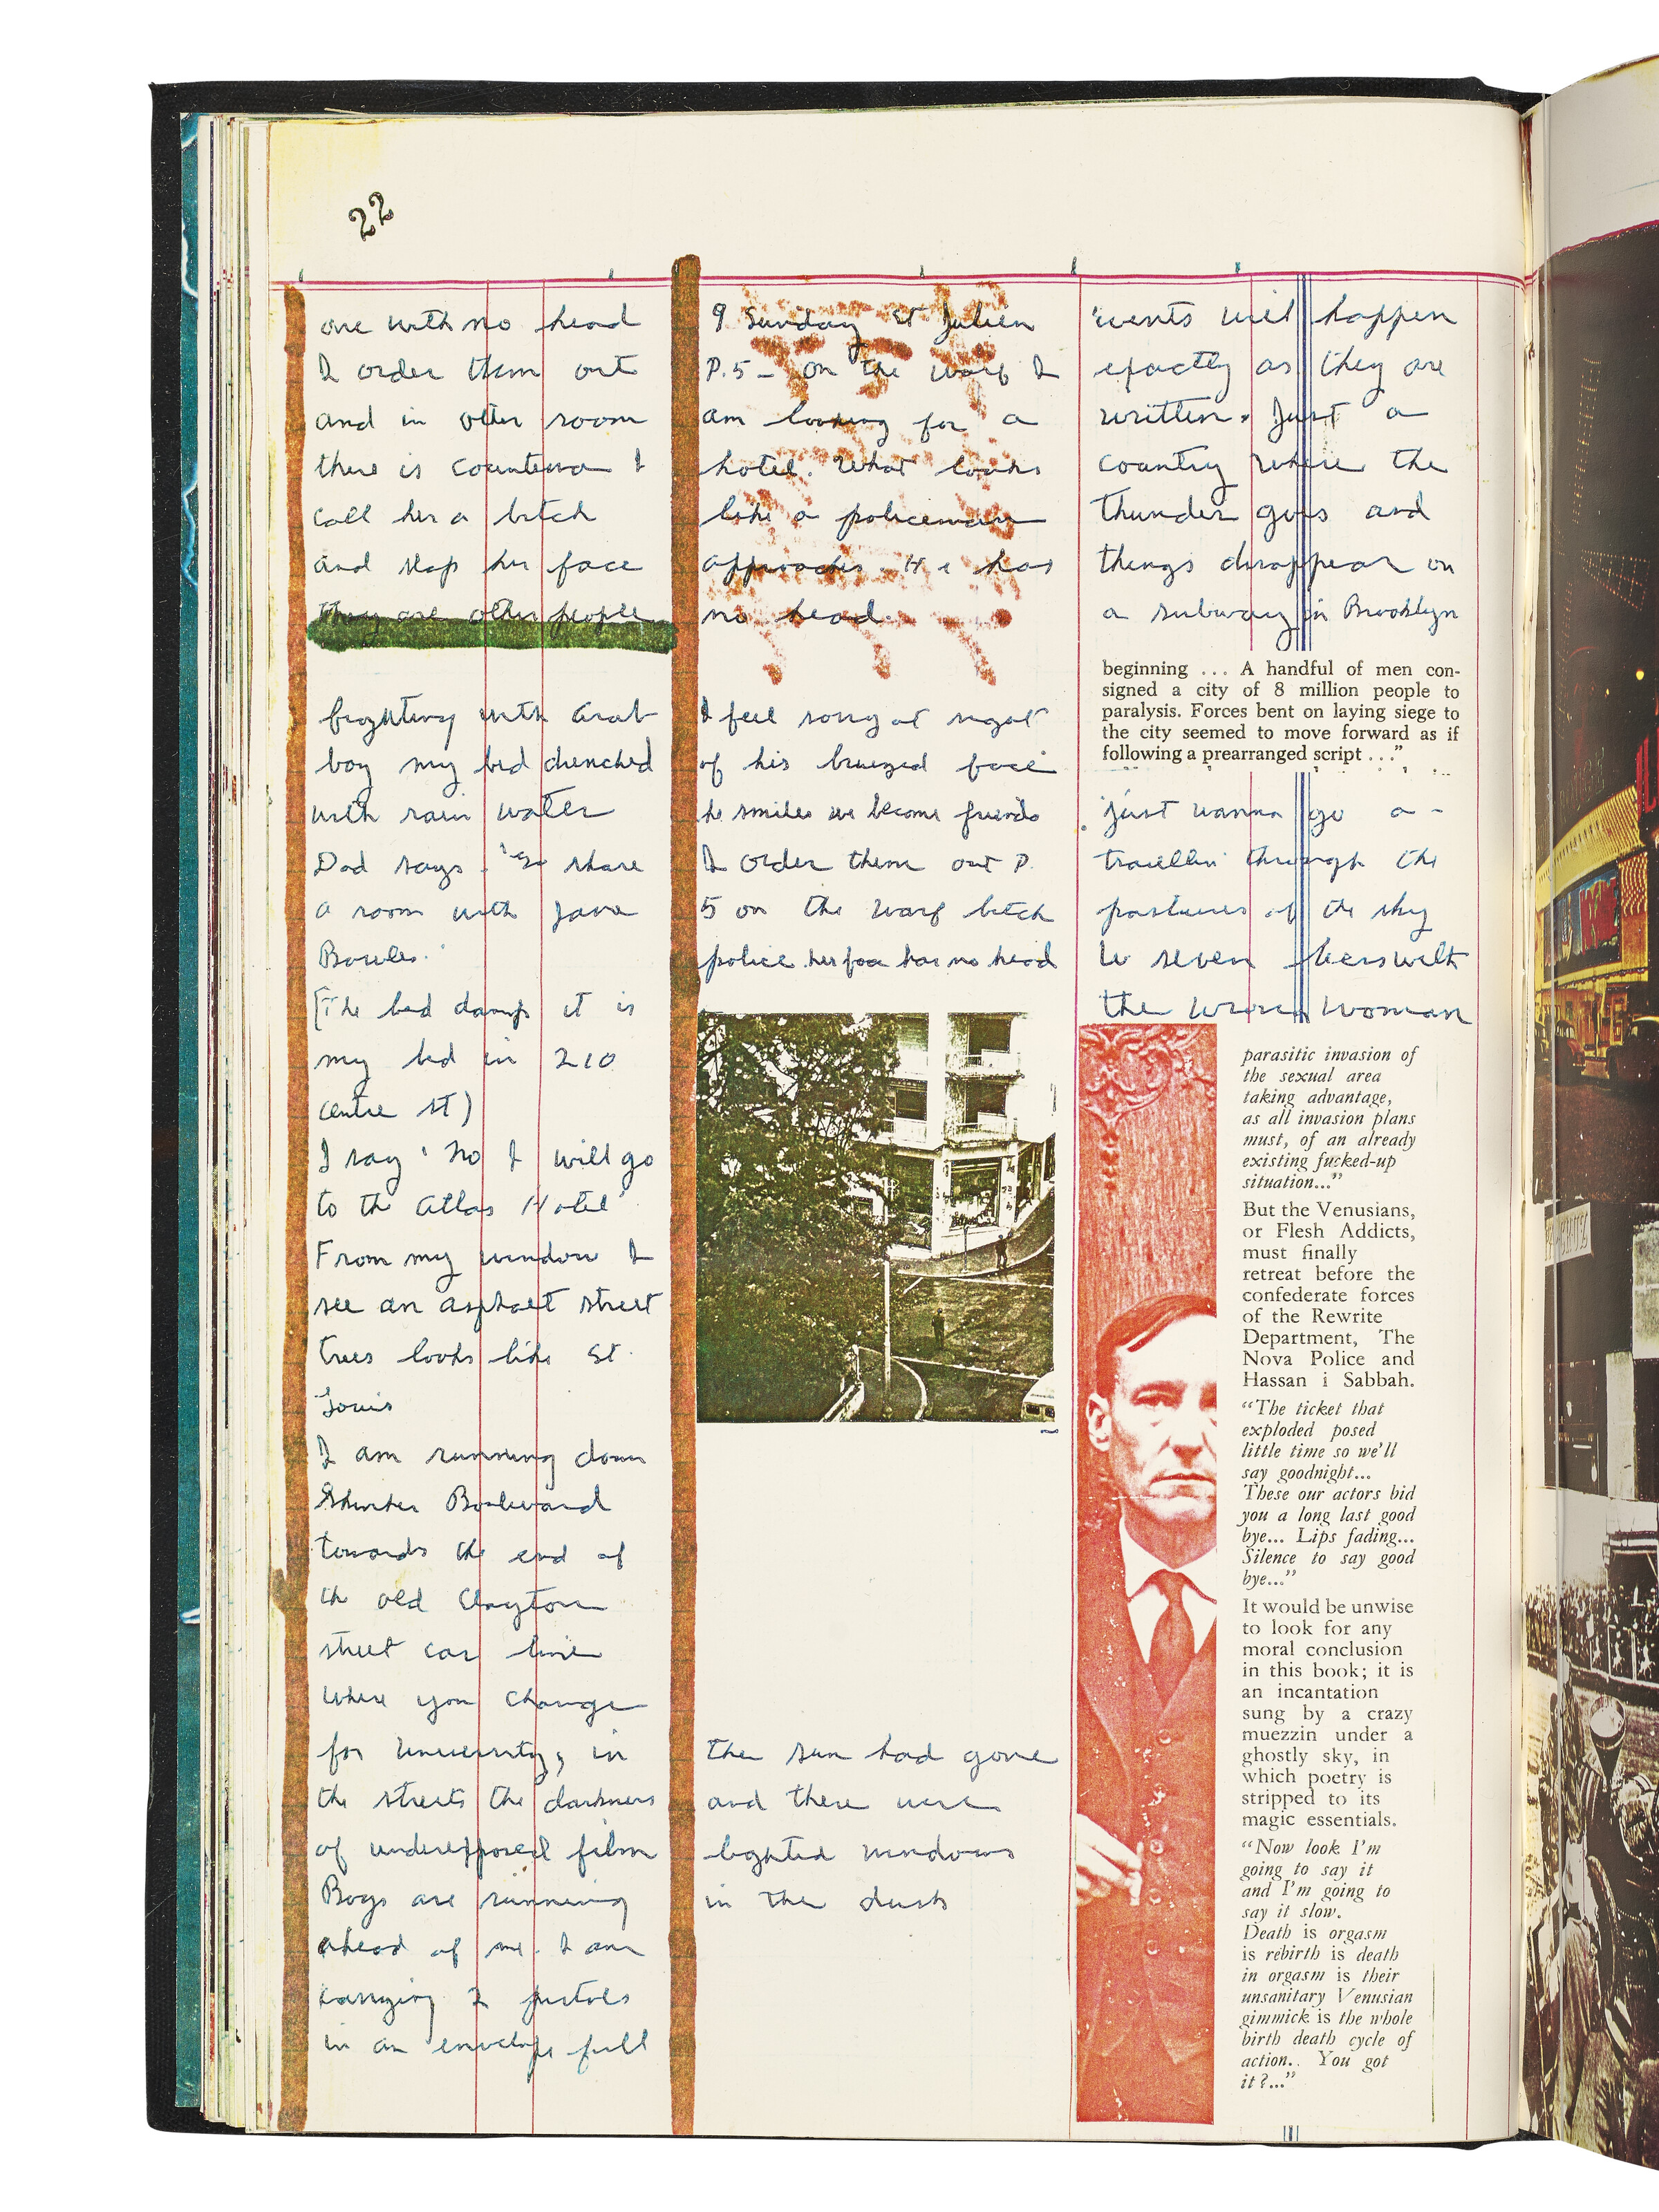 22
one with no head
I order them out
and in other room
there is countess I
call her a bitch
and slap her face
They are other people
fighting with Arab
boy my bed drenched
with rain water
Dad says. "So share
a room with Jane
Bowles."
(The bed damp it is
my bed in 210
centre st)
I say 'No I will go
to the Atlas Hotel'
From my window I
see an asphalt street
trees looks like St.
Louis
I am running down
Boulevard
towards the end of
the old Clayton
street car line
where you change
for University, in
the streets the darkness
of underexposed film
Boys are running
ahead of me. I am
carrying 2 pistols
in an envelope full
9 Sunday St Julien
P.5 – On the warf I
am looking for a
hotel. What looks
like a policeman
approaches. He has
no head.
I feel sorry at sight
of his bruized face
he smiles we become friends
I order them out P.
5 on the warf bitch
police her face has no head
the sun had gone
and there were
lighted windows
in the dusk
'vents will happen
exactly as they are
written. Just a
country where the
thunder goes and
things disappear on
a subway in Brooklyn
beginning ... A handful of men con-
signed a city of 8 million people to
paralysis. Forces bent on laying siege to
the city seemed to move forward as if
following a prearranged script . . ."
'just wanna go a-
travellin through the
pastures of the sky
seven
the wrong woman
parasitic invasion of
the sexual area
taking advantage,
as all invasion plans
must, of an already
existing fucked-up
situation..."
But the Venusians,
or Flesh Addicts,
must finally
retreat before the
confederate forces
of the Rewrite
Department, The
Nova Police and
Hassan i Sabbah.
"The ticket that
exploded posed
little time so we'll
say goodnight...
These our actors bid
you a long last good
bye... Lips fading...
Silence to say good
bye..."
It would be unwise
to look for any
moral conclusion
in this book; it is
an incantation
sung by a crazy
muezzin under a
ghostly sky, in
which poetry is
stripped to its
magic essentials.
"Now look I'm
going to say it
and I'm going to
say it slow.
Death is orgasm
is rebirth is death
in orgasm is their
unsanitary Venusian
gimmick is the whole
birth death cycle of
action.. You got
it?..."